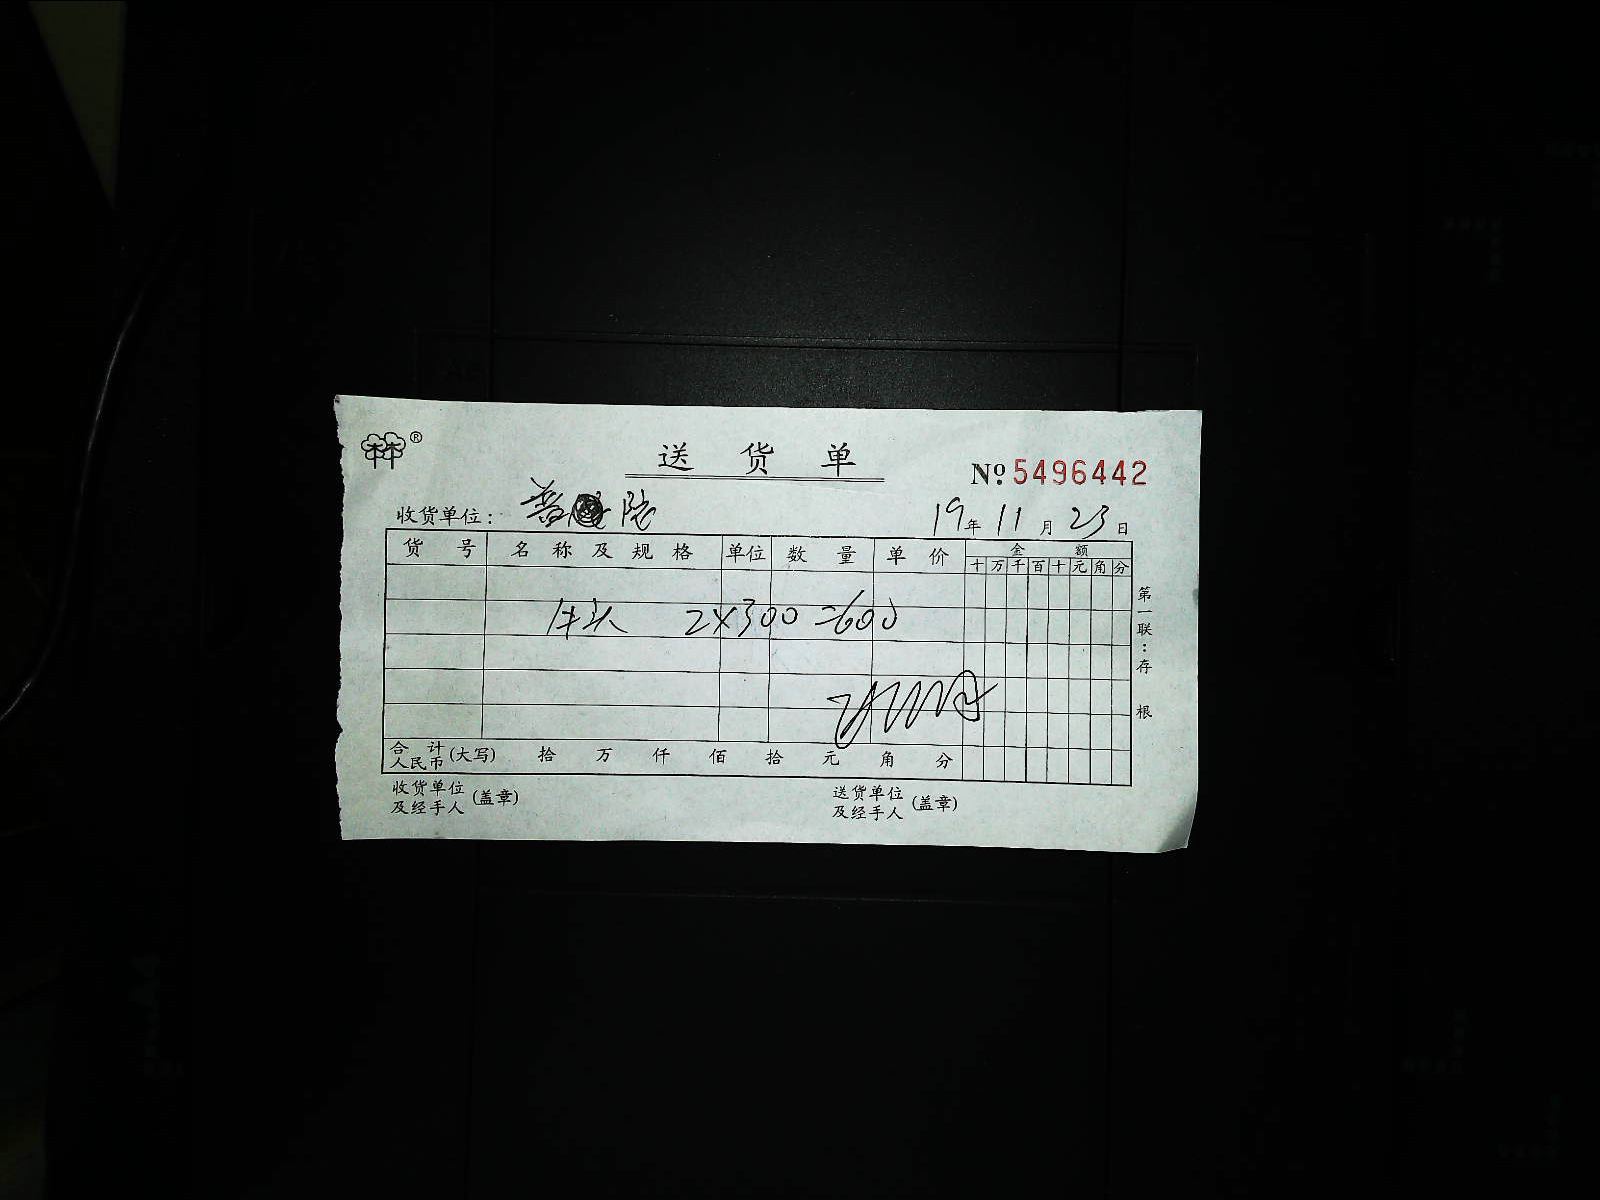 ®
送货单
№ 5496442
收货单位: 普陀
19年11月23日
货号 名称及规格 单位 数量 单价 金额
十万千百十元角分
牛头 2×300=600
合计人民币(大写) 拾 万 仟 佰 拾 元 角 分
收货单位及经手人(盖章)
送货单位及经手人(盖章)
第一联:存根